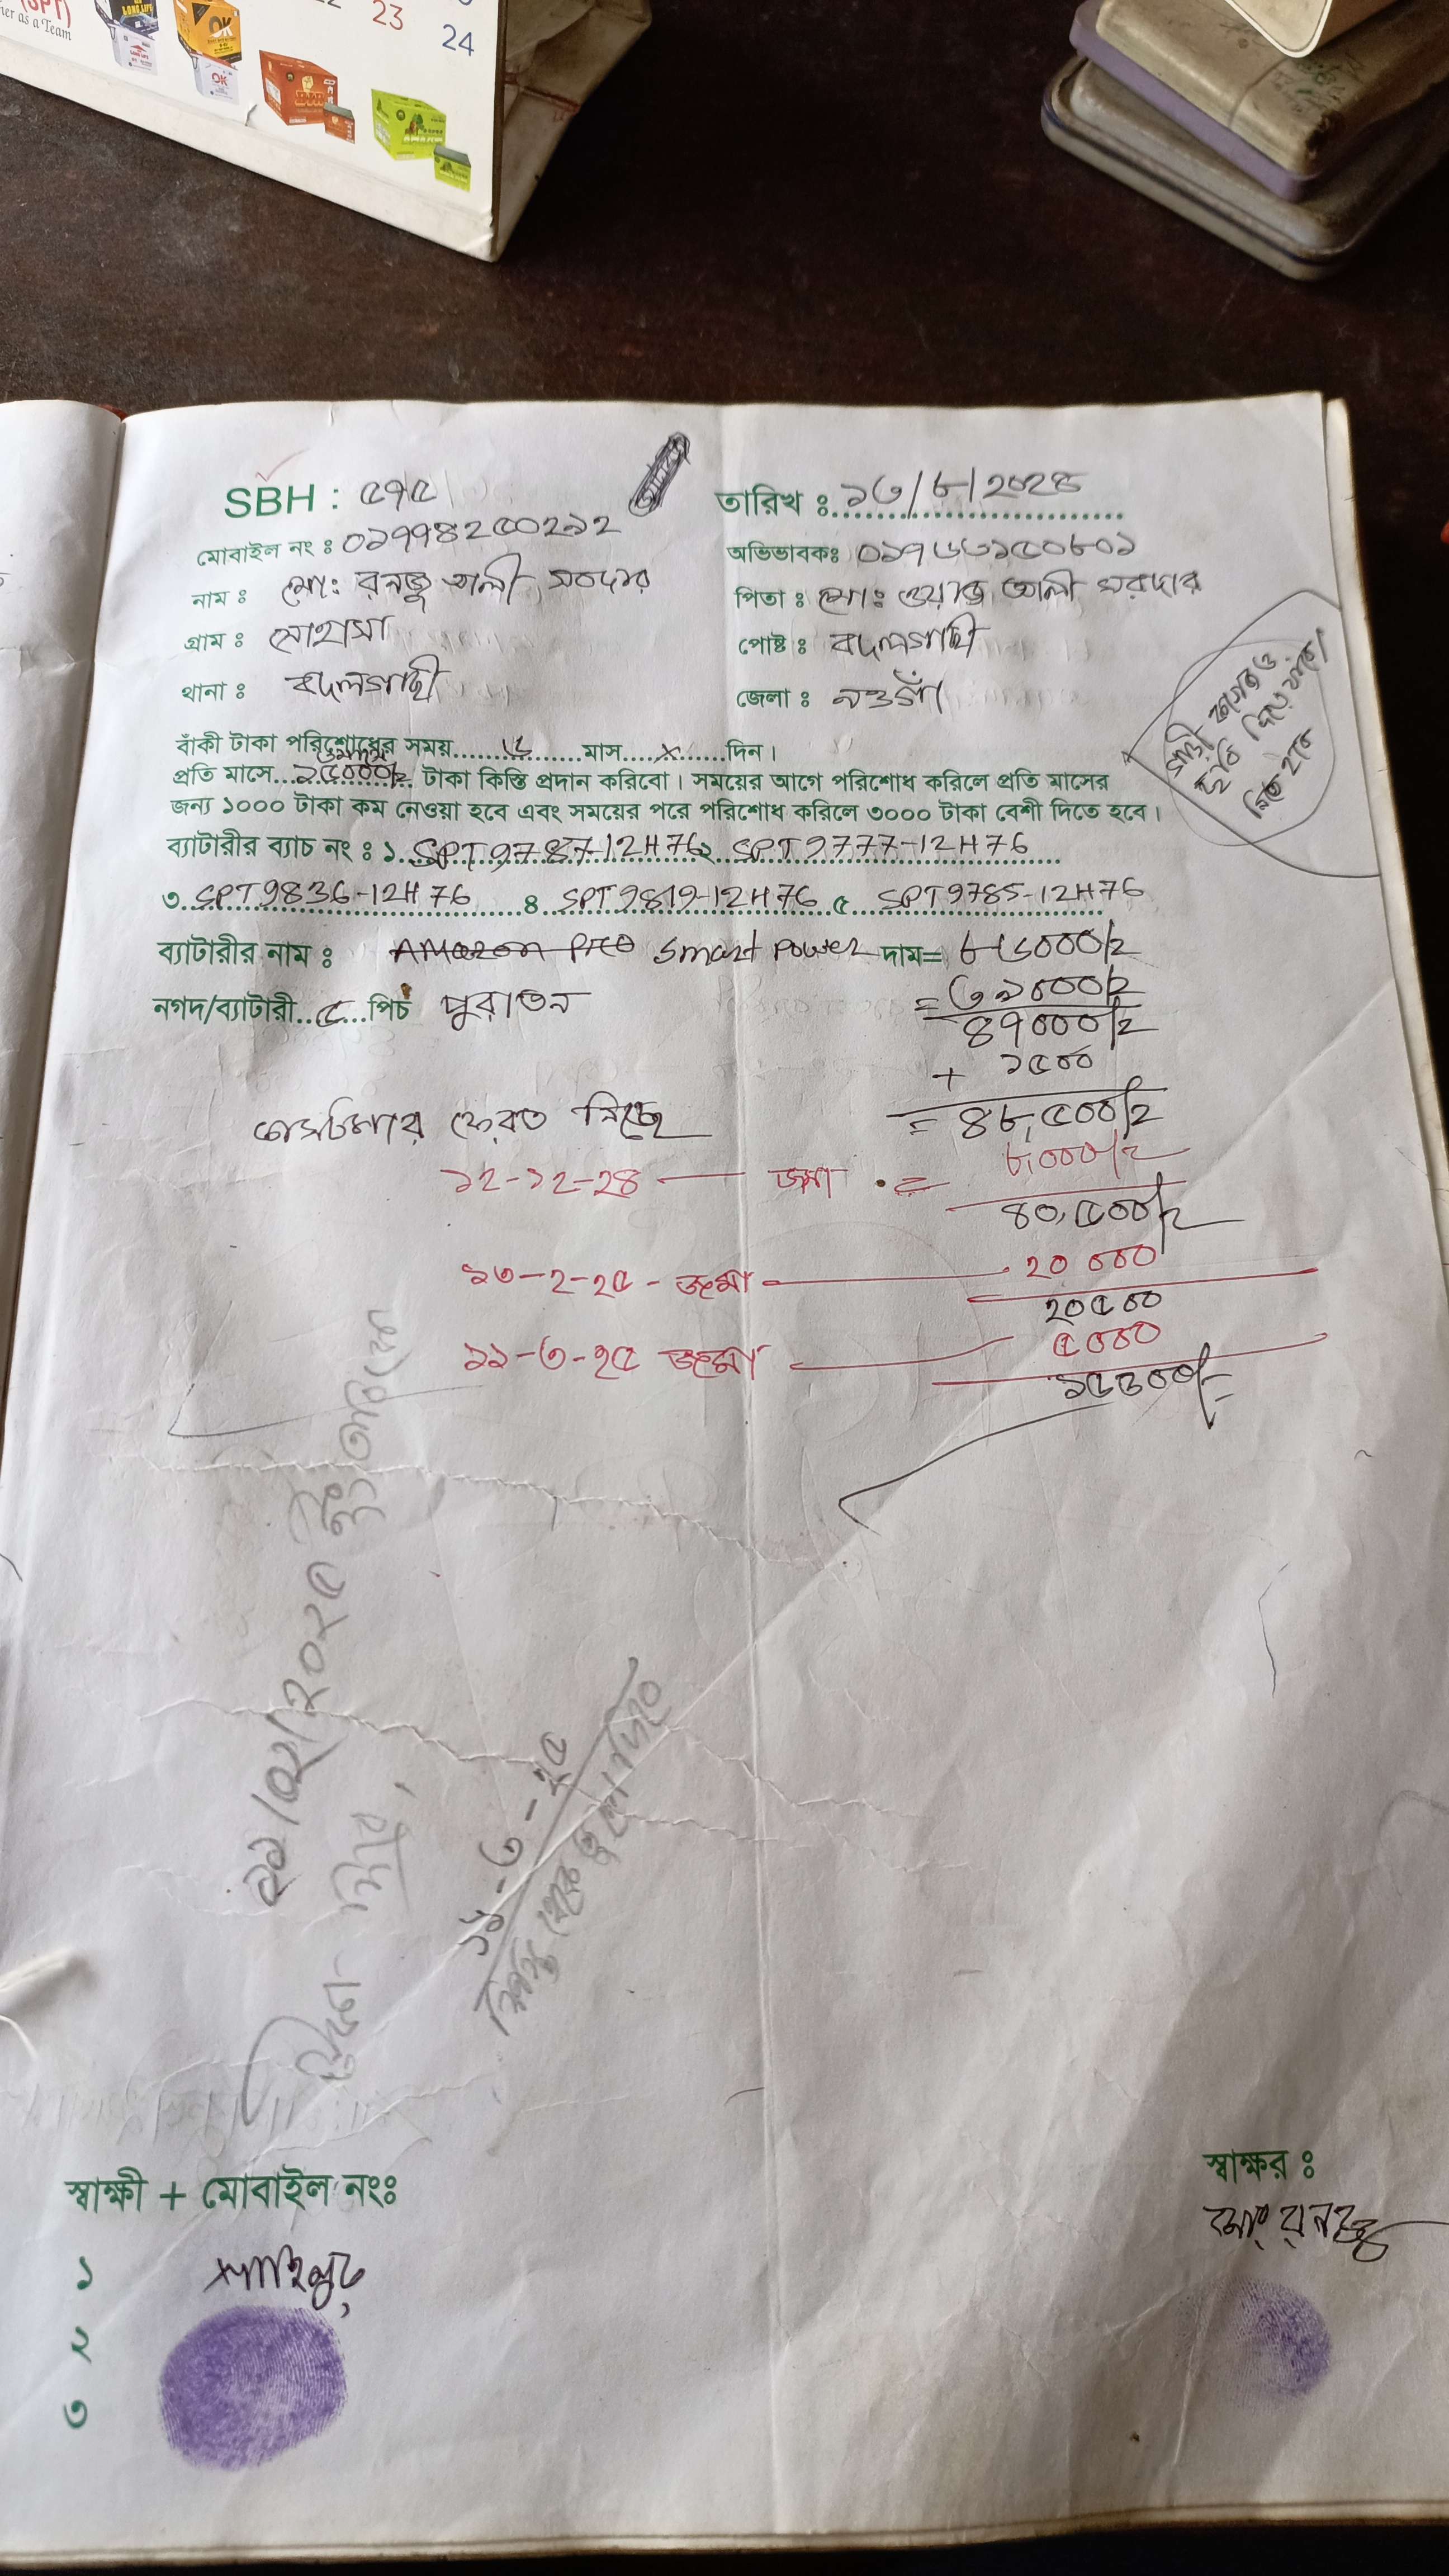 (SPT)
ner as a Team
23
24
OK
SBH : ৫৭৫
তারিখ ঃ ১৩/৮/২০২৪
মোবাইল নং ঃ ০১৭৭৪২৫০২১২
অভিভাবকঃ ০১৭৬৬১৫০৮০১
নাম ঃ মো: রনজু আলী সরদার
পিতা ঃ মো: ওয়াজ আলী সরদার
গ্রাম ঃ
পোষ্ট ঃ বদলগাছী
থানা ঃ বদলগাছী
জেলা ঃ নওগাঁ
গাড়ী কাগজ ও
ছবি দিয়ে যাবে।
নিতে হবে
বাঁকী টাকা পরিশোধের সময় ৬ মাস x দিন।
প্রতি মাসে ১৫০০০/২ টাকা কিস্তি প্রদান করিবো। সময়ের আগে পরিশোধ করিলে প্রতি মাসের
জন্য ১০০০ টাকা কম নেওয়া হবে এবং সময়ের পরে পরিশোধ করিলে ৩০০০ টাকা বেশী দিতে হবে।
ব্যাটারীর ব্যাচ নং ঃ ১ SPT9787-12H76 ২ SPT9777-12H76
৩ SPT9836-12H76 ৪ SPT9819-12H76 ৫ SPT9785-12H76
ব্যাটারীর নাম ঃ Amazon Pro Smart Power দাম= ৮৬০০০/২
নগদ/ব্যাটারী ৫ পিচ পুরাতন = ৩৯০০০/২
৪৭০০০/২
+ ১৫০০
কাসটমার ফেরত নিছে = ৪৮,৫০০/২
১২-১২-২৪ — জমা = ৮,০০০/২
৪০,৫০০/২
১৩-২-২৫ - জমা — ২০০০০
২০৫০০
১১-৩-২৫ জমা — ৫০০০
১৫৫০০/=
২১/০২/২০২৫ ইং তারিখে
১১-৩-২৫
স্বাক্ষী + মোবাইল নংঃ
স্বাক্ষর ঃ
মো: রনজু
১
২
৩